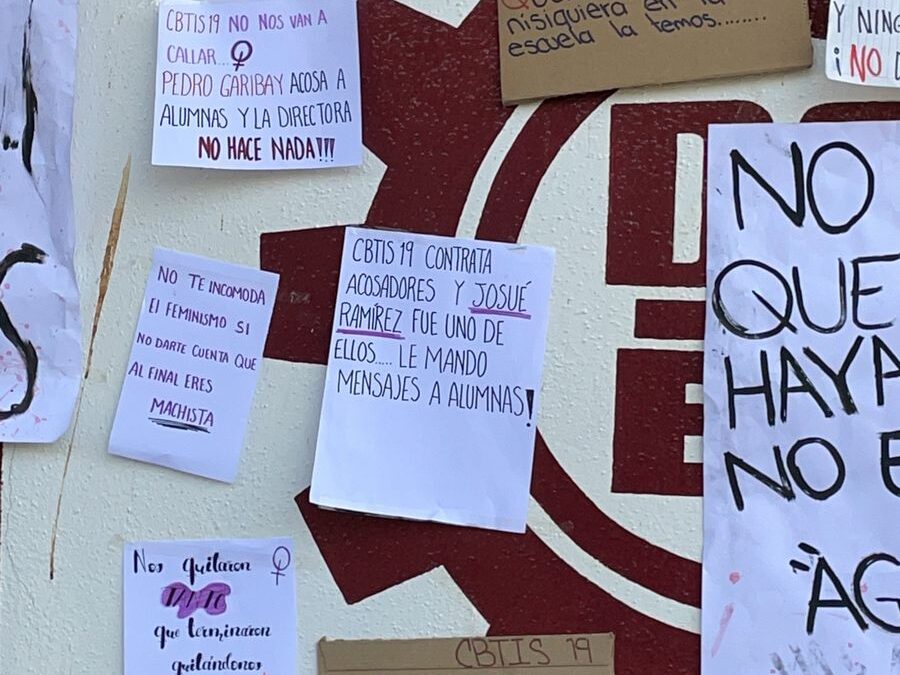 CBTIS19 NO NOS VAN A
CALLAR...
PEDRO GARIBAY ACOSA A
ALUMNAS Y LA DIRECTORA
NO HACE NADA!!!
nisiquiera en la
escuela la temos........
Y NING
¡NO
NO TE INCOMODA
El FEMINISMO SI
NO DARTE CUENTA QUE
AL FINAL ERES
MACHISTA
CBTIS 19 CONTRATA
ACOSADORES Y JOSUÉ
RAMÍREZ FUE UNO DE
ELLOS.... LE MANDO
MENSAJES A ALUMNAS!
NO
QUE
HAYA
NO E
"AG
S
Nos quitaron
tanto
que terminaron
quitándonos
CBTIS 19